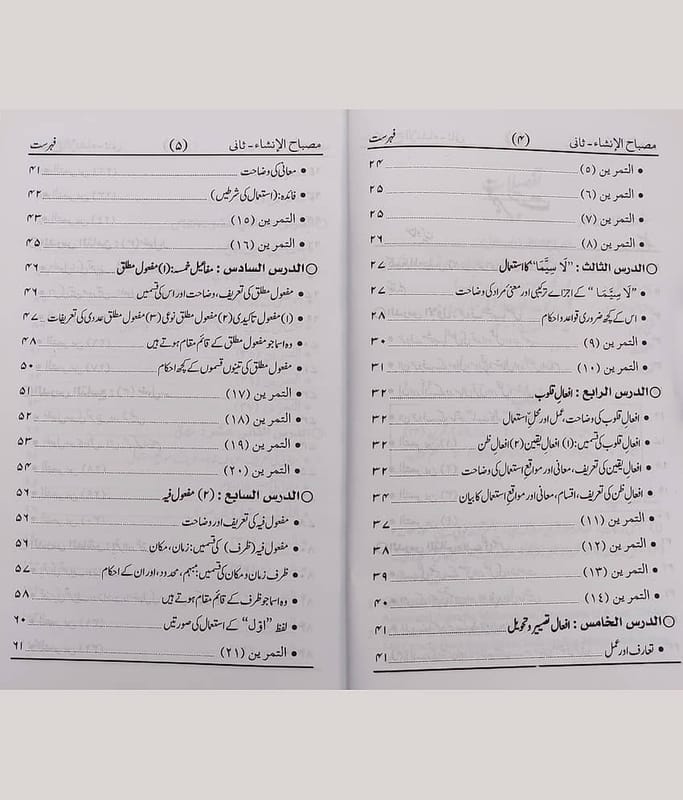 مصباح الإنشاء - ثانی (۴) فہرست
• التمرین (۵) ۲۴
• التمرین (۶) ۲۵
• التمرین (۷) ۲۵
• التمرین (۸) ۲۶
○ الدرس الثالث : ”لَا سِيَّمَا“ کا استعمال ۲۷
• ”لَا سِيَّمَا“ کے اجزاے ترکیبی اور معنی مراد کی وضاحت ۲۷
• اس کے کچھ ضروری قواعد و احکام ۲۸
• التمرین (۹) ۳۰
• التمرین (۱۰) ۳۱
○ الدرس الرابع : افعال قلوب ۳۲
• افعال قلوب کی وضاحت، عمل اور محلِ استعمال ۳۲
• افعال قلوب کی قسمیں: (۱) افعال یقین (۲) افعال ظن ۳۲
• افعال یقین کی تعریف، معانی اور مواقع استعمال کی وضاحت ۳۲
• افعال ظن کی تعریف، اقسام، معانی اور مواقع استعمال کا بیان ۳۴
• التمرین (۱۱) ۳۷
• التمرین (۱۲) ۳۸
• التمرین (۱۳) ۳۹
• التمرین (۱۴) ۴۰
○ الدرس الخامس : افعال تصییر و تحویل ۴۱
• تعارف اور عمل ۴۱
مصباح الإنشاء - ثانی (۵) فہرست
• معانی کی وضاحت ۴۱
• فائدہ: (استعمال کی شرطیں) ۴۲
• التمرین (۱۵) ۴۳
• التمرین (۱۶) ۴۵
○ الدرس السادس : مفاعیل خمسہ: (۱) مفعول مطلق ۴۶
• مفعول مطلق کی تعریف، وضاحت اور اس کی قسمیں ۴۶
• (۱) مفعول تاکیدی (۲) مفعول مطلق نوعی (۳) مفعول مطلق عددی کی تعریفات ۴۷
• وہ اسما جو مفعول مطلق کے قائم مقام ہوتے ہیں ۴۸
• مفعول مطلق کی تینوں قسموں کے کچھ احکام ۵۰
• التمرین (۱۷) ۵۱
• التمرین (۱۸) ۵۲
• التمرین (۱۹) ۵۳
• التمرین (۲۰) ۵۴
○ الدرس السابع : (۲) مفعول فیہ ۵۶
• مفعول فیہ کی تعریف اور وضاحت ۵۶
• مفعول فیہ (ظرف) کی قسمیں: زمان، مکان ۵۶
• ظرف زمان و مکان کی قسمیں: مبہم، محدود، اور ان کے احکام ۵۷
• وہ اسما جو ظرف کے قائم مقام ہوتے ہیں ۵۸
• لفظ ”اوّل“ کے استعمال کی صورتیں ۶۰
• التمرین (۲۱) ۶۱